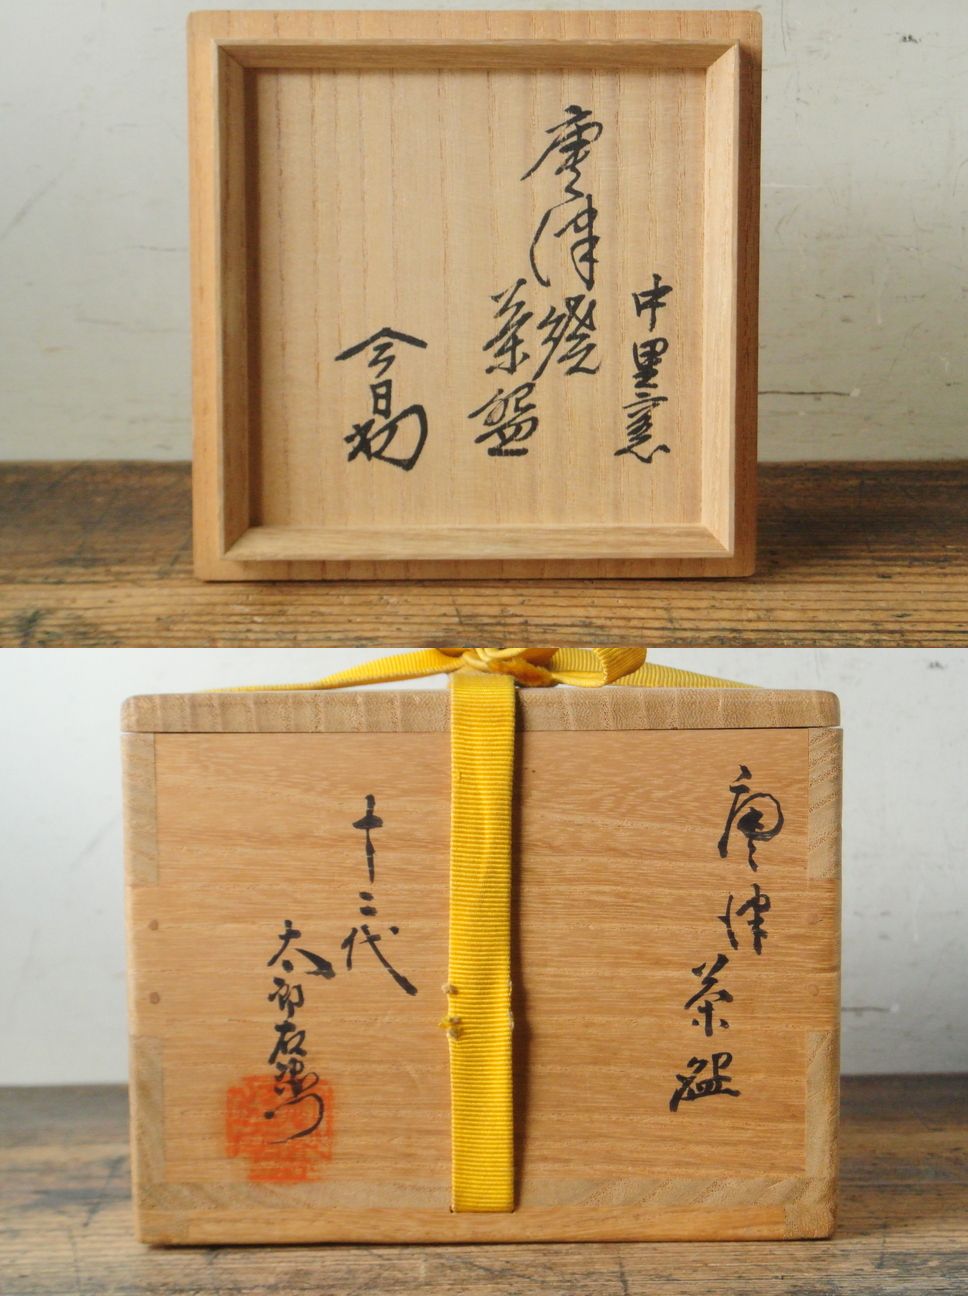 中里窯
唐津焼
茶盌
今日
唐津茶盌
十三代
太郎右衛門